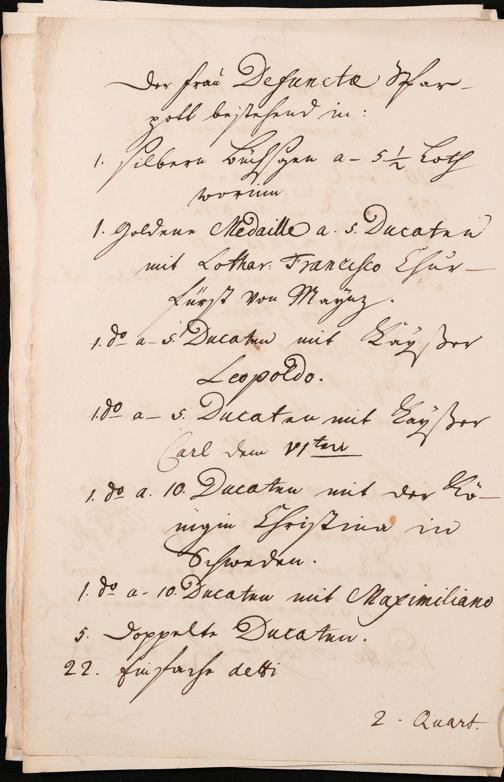 Der Frau Defunctæ Spar-
pott bestehend in:
1. silbern Büchsgen a - 5 1/2 Loth
worinn
1. Goldene Medaille a. 5. Ducaten
mit Lothar: Francisco Chur-
fürst von Maynz.
1. do a - 5. Ducaten mit Kaÿser
Leopoldo.
1. do a - 5. Ducaten mit Kaÿser
Carl dem VIten
1. do a. 10. Ducaten mit der Kö-
nigin Christina in
Schweden.
1. do a - 10. Ducaten mit Maximiliano
5. doppelte Ducaten.
22. einfache detti
2. Quart.